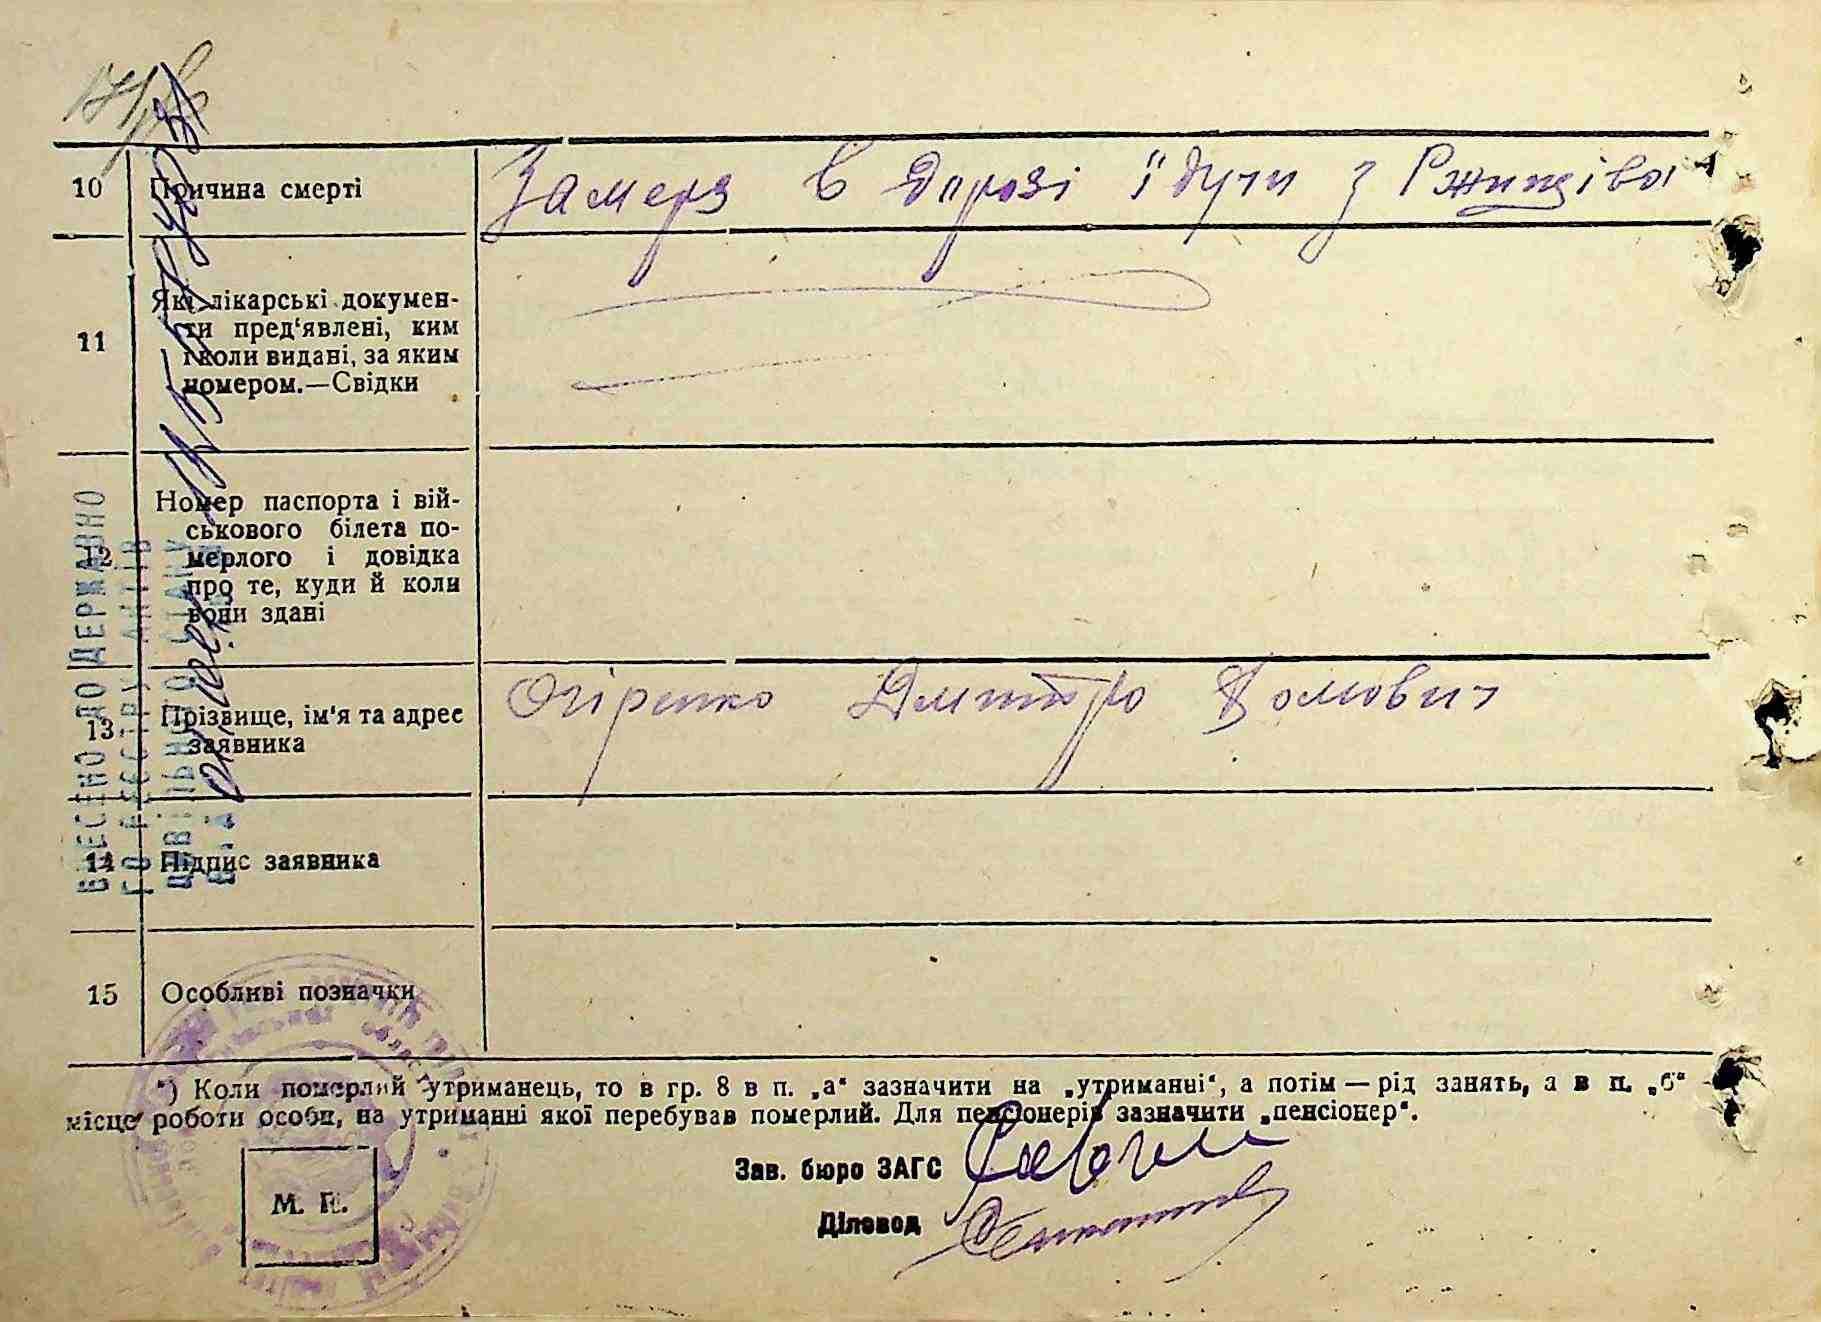 10 Причина смерті
Замерз в дорозі їдучи з Ржищіва
11 Які лікарські докумен-
ти пред'явлені, ким
і коли видані, за яким
номером.—Свідки
12 Номер паспорта і вій-
ськового білета по-
мерлого і довідка
про те, куди й коли
вони здані
13 Прізвище, ім'я та адрес
заявника
Огіренко Дмитро Домович
14 Підпис заявника
15 Особливі позначки
*) Коли померлий утриманець, то в гр. 8 в п. „а“ зазначити на „утриманні“, а потім — рід занять, а в п. „б“
місце роботи особи, на утриманні якої перебував померлий. Для пенсіонерів зазначити „пенсіонер“.
Зав. бюро ЗАГС
Діловод
М. П.
ВНЕСЕНО ДО ДЕРЖАВНО
ГО РЕЄСТРУ АКТІВ
ЦИВІЛЬНОГО СТАНУ